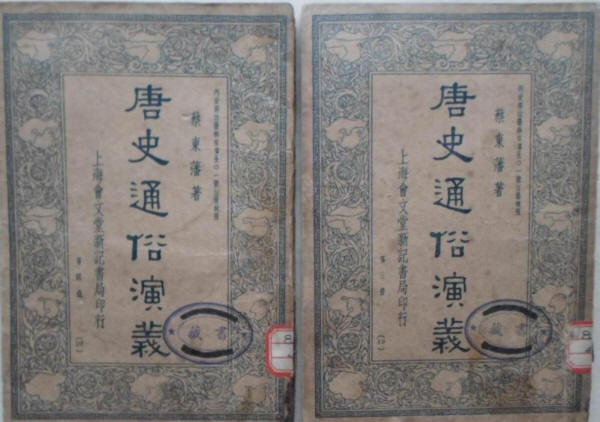 蔡東藩著
唐史通俗演義
上海會文堂新記書局印行
第四冊
藏書
蔡東藩著
唐史通俗演義
上海會文堂新記書局印行
第三冊
藏書